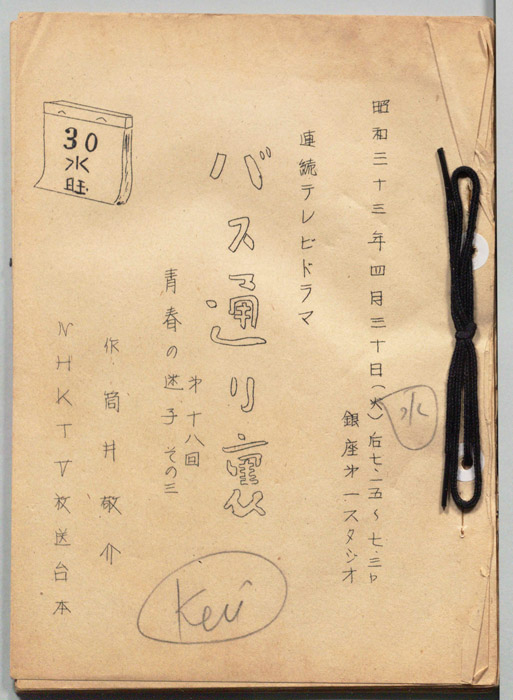 昭和三十三年四月三十日(火)后七・一五～七・三〇
水
銀座㐧一スタジオ
連続テレビドラマ
バス通り裏
㐧十八回
青春の迷子 その三
作 筒井敬介
NHKTV放送台本
30
水
旺